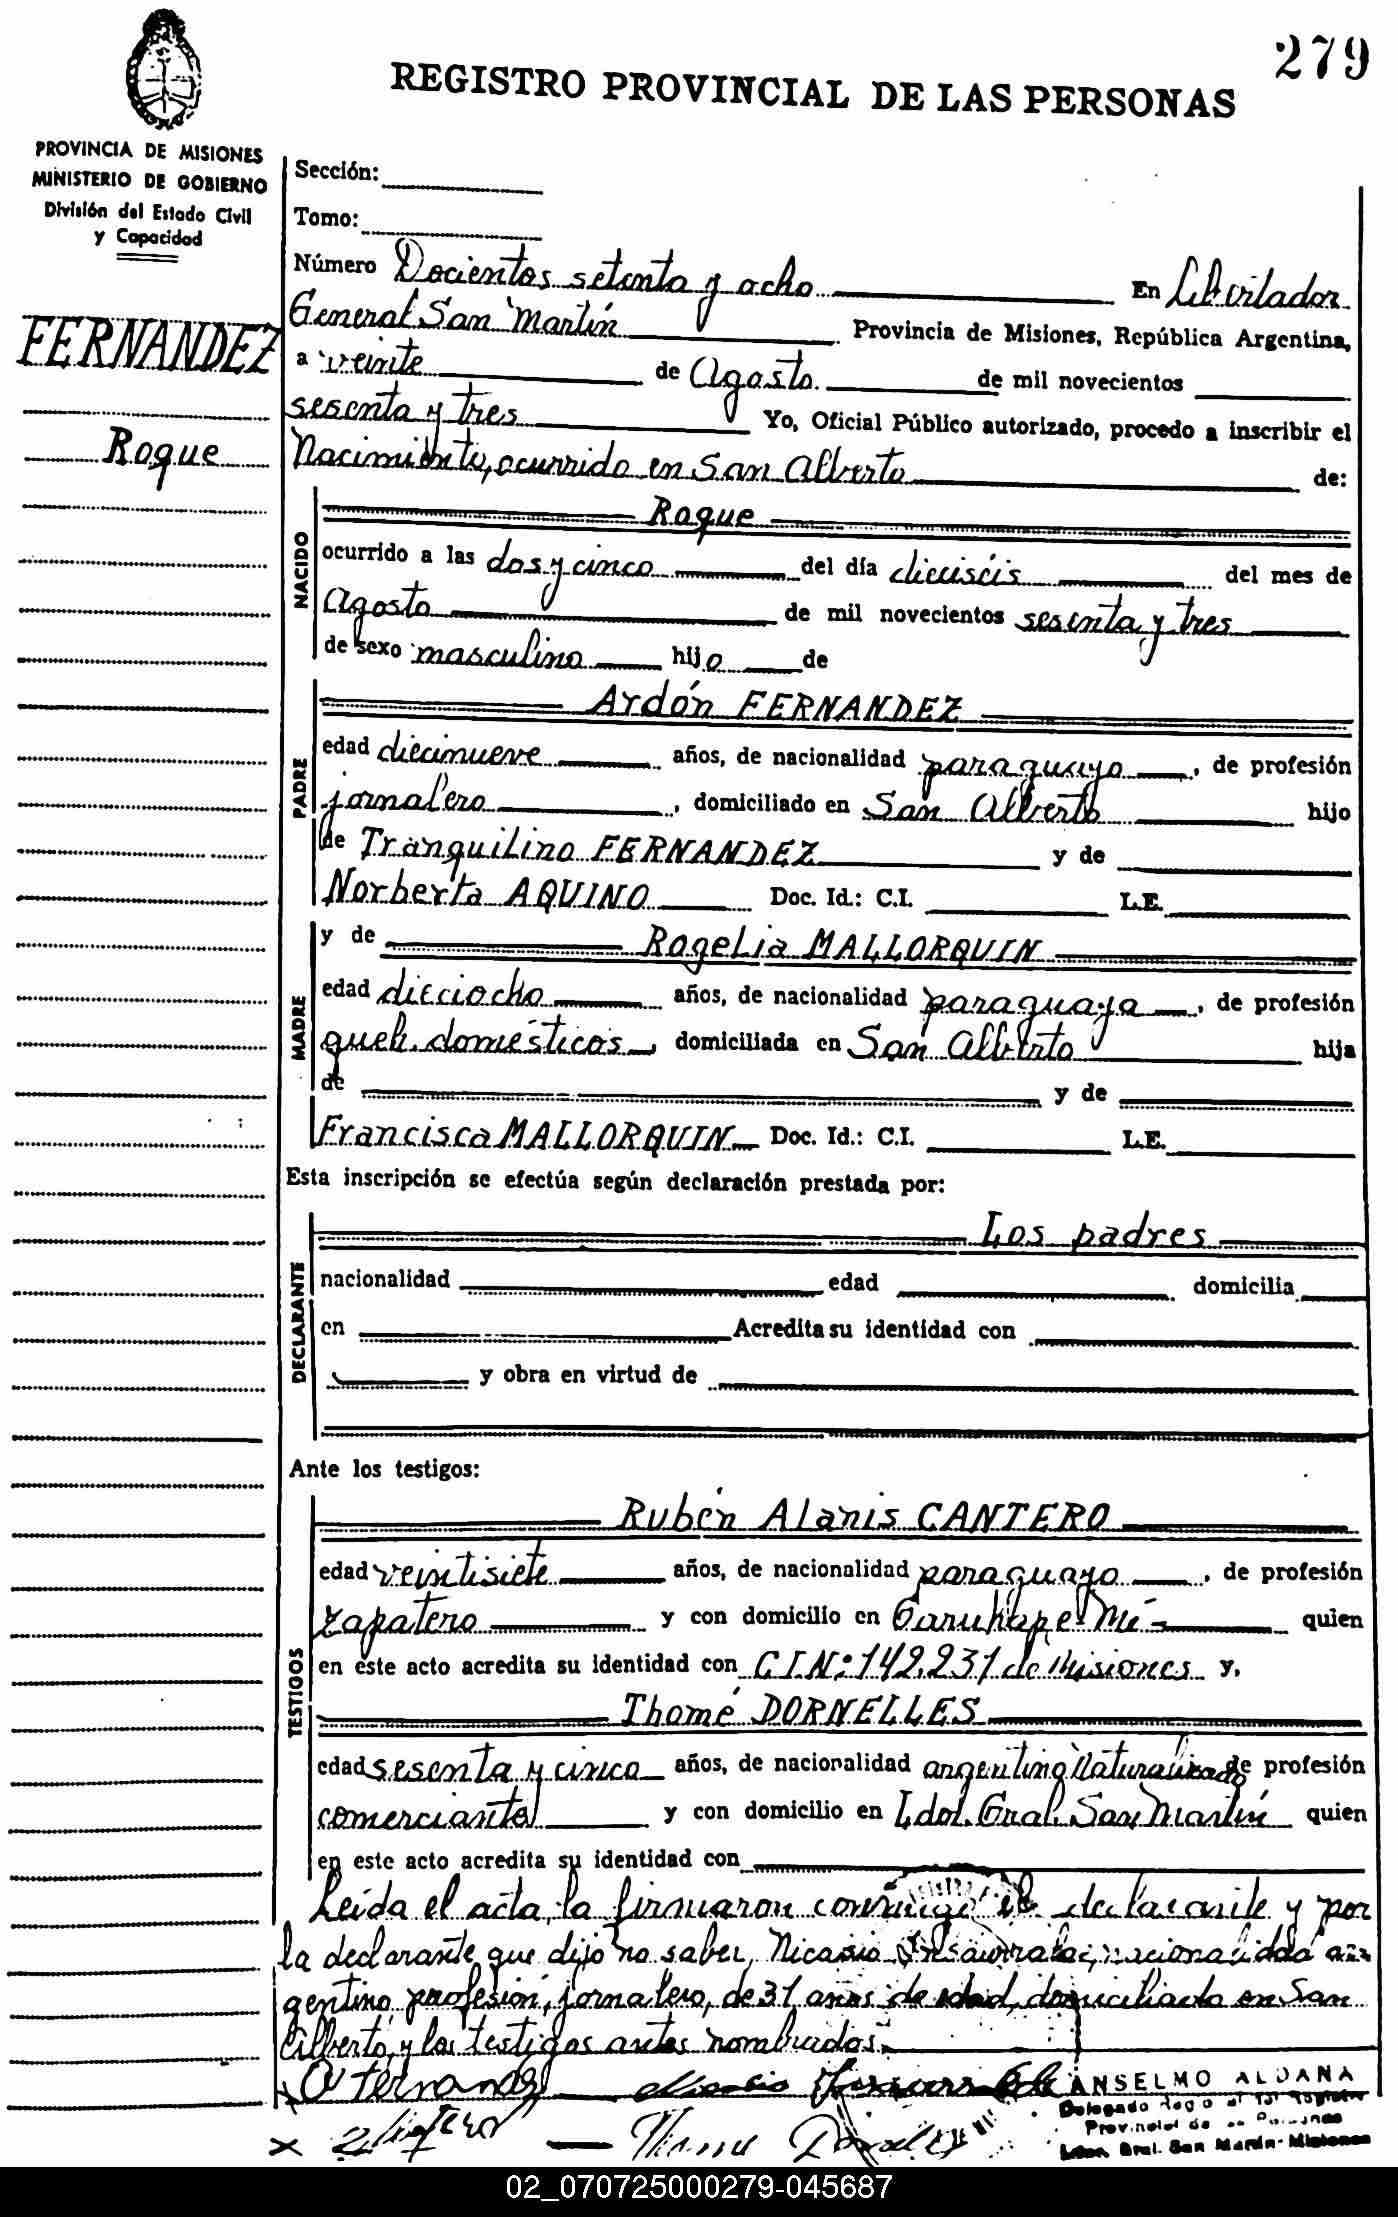 279
REGISTRO PROVINCIAL DE LAS PERSONAS
PROVINCIA DE MISIONES
MINISTERIO DE GOBIERNO
División del Estado Civil
y Capacidad
FERNANDEZ
Roque
Sección:
Tomo:
Número Docientos setenta y ocho En Libertador
General San Martín Provincia de Misiones, República Argentina,
a veinte de Agosto de mil novecientos
sesenta y tres Yo, Oficial Público autorizado, procedo a inscribir el
Nacimiento, ocurrido en San Alberto de:
NACIDO
Roque
ocurrido a las dos y cinco del día dieciseis del mes de
Agosto de mil novecientos sesenta y tres
de sexo masculino hijo de
PADRE
Ardón FERNANDEZ
edad diecinueve años, de nacionalidad paraguayo, de profesión
jornalero, domiciliado en San Alberto hijo
de Tranquilino FERNANDEZ y de
Norberta AQUINO Doc. Id.: C.I. L.E.
MADRE
y de Rogelia MALLORQUIN
edad dieciocho años, de nacionalidad paraguaya, de profesión
queh. domésticos, domiciliada en San Alberto hija
de y de
Francisca MALLORQUIN Doc. Id.: C.I. L.E.
Esta inscripción se efectúa según declaración prestada por:
DECLARANTE
Los padres
nacionalidad edad domicilia
en Acredita su identidad con
y obra en virtud de
Ante los testigos:
TESTIGOS
Rubén Alanis CANTERO
edad veintisiete años, de nacionalidad paraguayo, de profesión
zapatero y con domicilio en Garuhape-Mí- quien
en este acto acredita su identidad con C.I.Nº 142.231 de Misiones y,
Thomé DORNELLES
edad sesenta y cinco años, de nacionalidad argentino naturalizado de profesión
comerciante y con domicilio en Ldor. Gral. San Martín quien
en este acto acredita su identidad con
Leída el acta, la firmaron conmigo el declarante y por
la declarante que dijo no saber, Nicasio Insaurralde, nacionalidad ar-
gentino, profesión, jornalero, de 31 años de edad, domiciliado en San
Alberto, y los testigos antes nombrados.
ANSELMO ALDANA
Delegado
Provincial de las Personas
Ldor. Gral. San Martín - Misiones
02_070725000279-045687